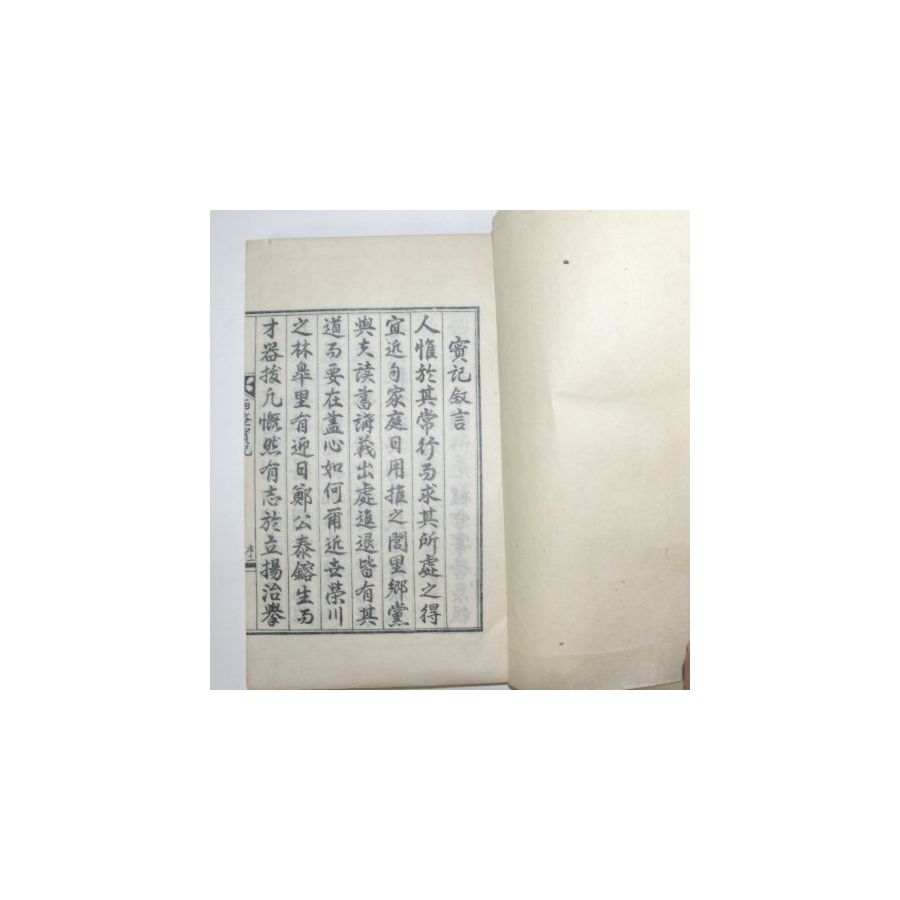 實記敍言
人惟於其常行而求其所處之得
宜近自家庭日用推之閭里鄉黨
與夫讀書講義出處進退皆有其
道而要在盡心如何爾近世榮川
之林皐里有迎日鄭公泰鎔生而
才器拔凡慨然有志於立揚治擧
實記